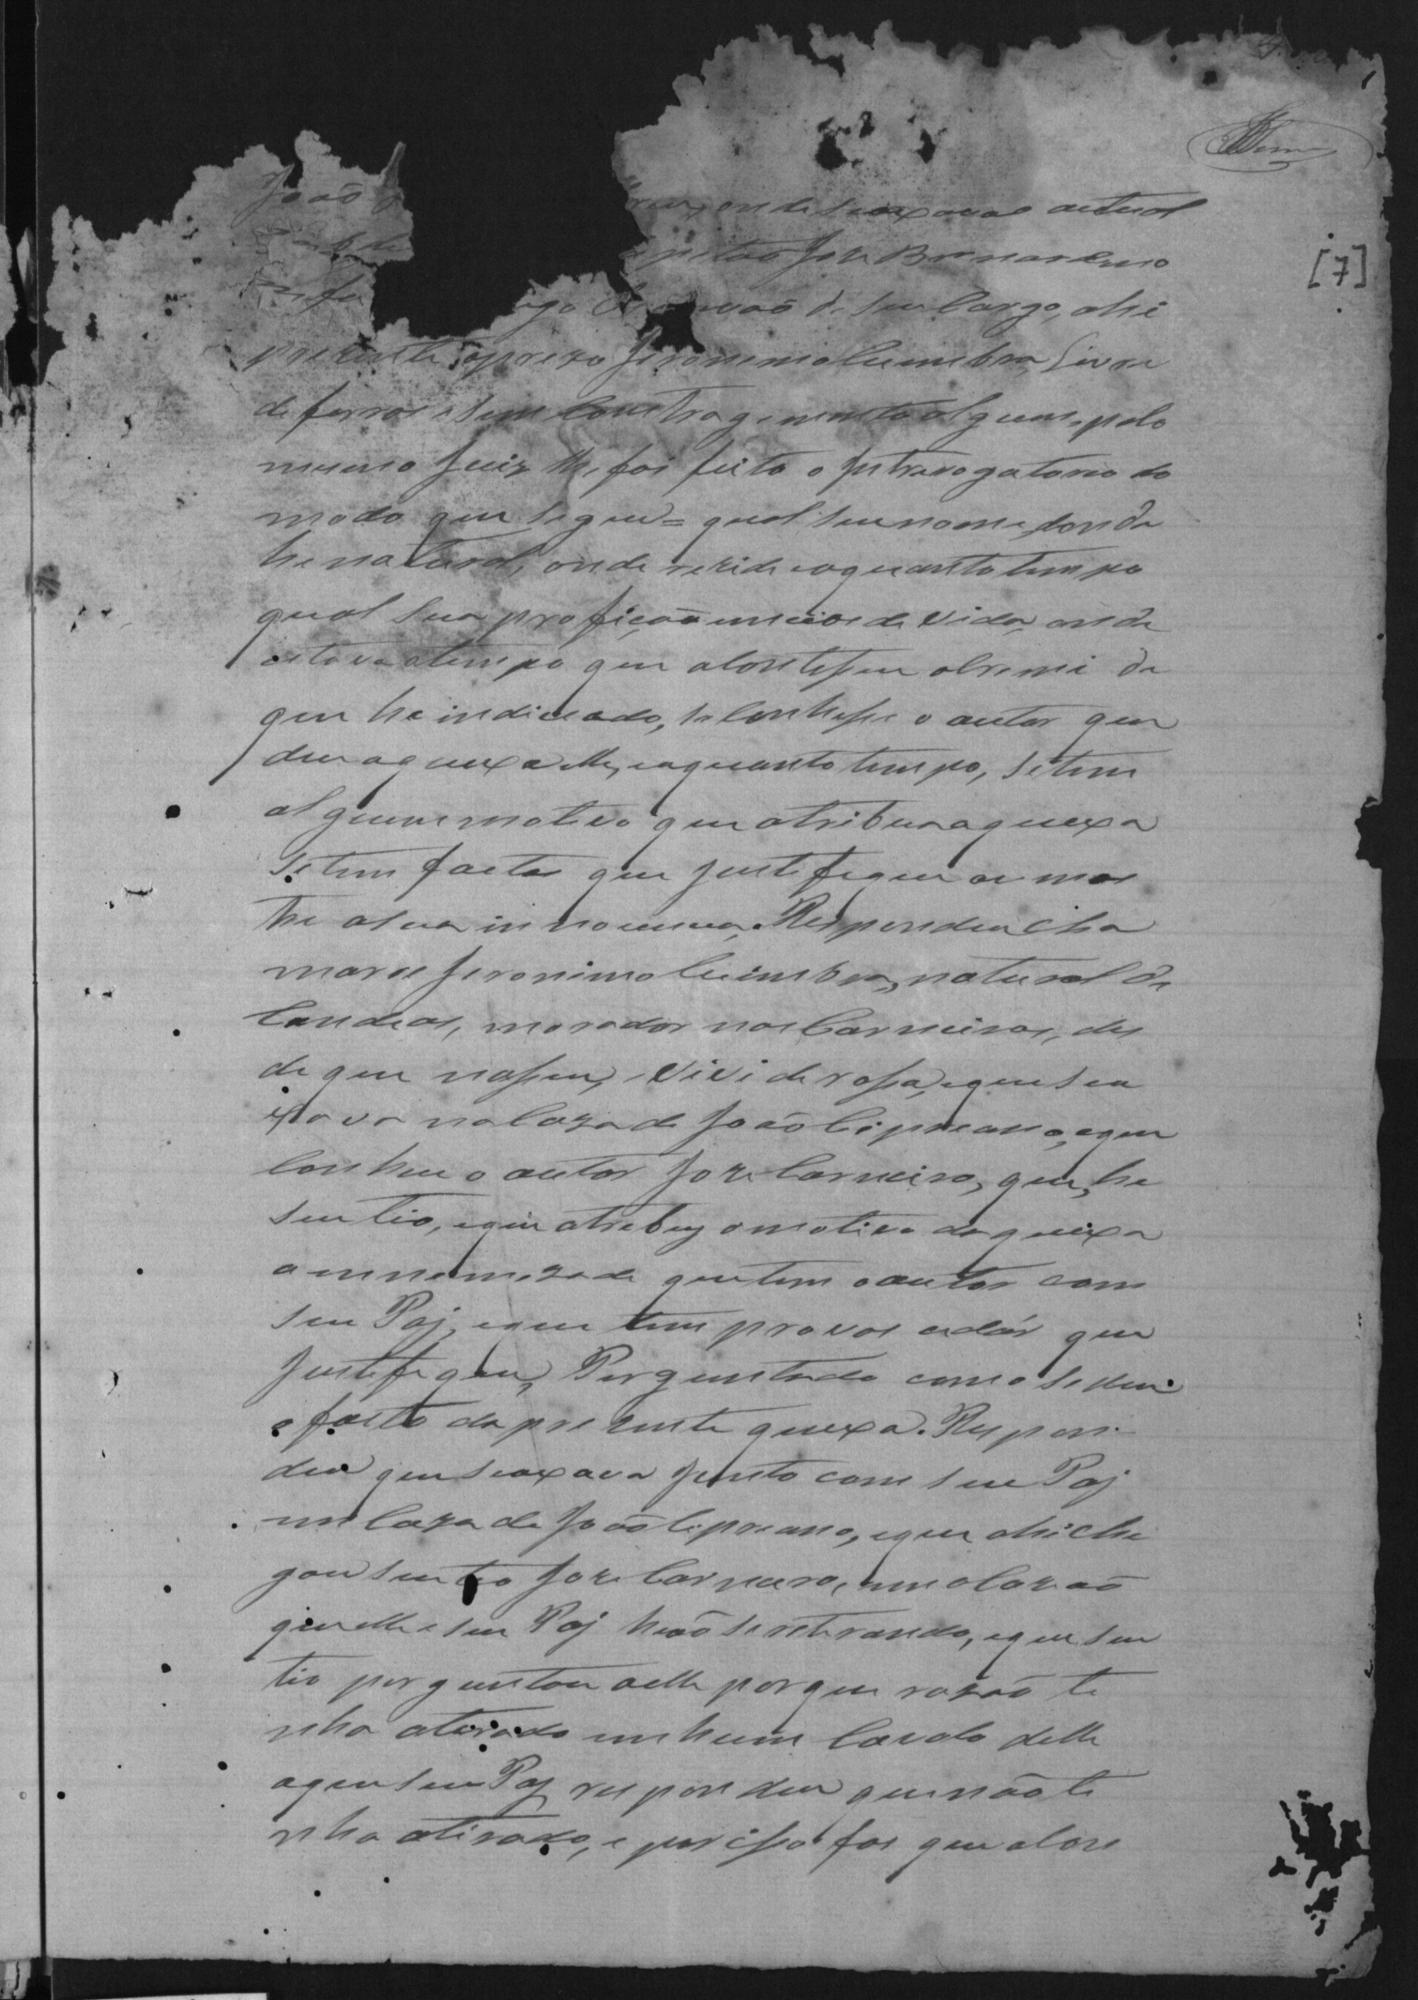 [7]
João
onde se axava o actual
pitão Jozé Bernardino
comigo Escrivão de seu Cargo, ahi
prezente o prezo Jeronimo Cuimbra Livre
de ferros e sem Constrangimento algum, pelo
mesmo Juiz lhe foi feito o Intrerogatorio do
modo que segue = qual seu nome, donde
he natural, onde rezide e aquanto tempo
qual sua profição e meios de vida, onde
estava atempo que acontesseu o crime de
que he indiciado, se Conhesse o autor que
deu aqueixa delle, e aquanto tempo, se tem
algum motivo que atribua aqueixa
se tem factos que justefiquem ou mos
tre a sua innocencia. Respondeu cha
marse Jeronimo Cuimbra, natural de
Candeas, morador nos Carneiros, des
de que nasseu, e Vivi de rossa, e que sea
xava na Caza de João Cipreano, e que
Conheci o autor Joze Carneiro, que he
seu tio, e que atrebuy o motivo da queixa
a innemizade que tem o autor com
seu Paj, e que tem provas a dár que
Justefiquem, Perguntado como se deu
o facto da prezente queixa. Respon
deu que seaxava junto com seu Paj
em Caza de João Cipreano, e que ahi che
gou seu tio Joze Carneiro, em ocazião
que elle e seu Paj hião se retirando, e que seu
tio perguntou a elle porque razão ti
nha atirado em hum Cavalo delle
aque seu Paj respondeu que não ti
nha atirado, e por isso foi que o dore